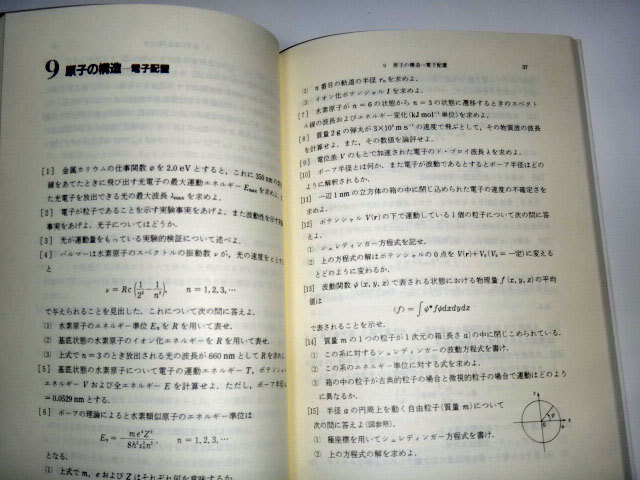 9 原子の構造—電子配置
[1] 金属カリウムの仕事関数φを2.0 eVとすると，これに350 nmの
線をあてたときに飛び出す光電子の最大運動エネルギーEmaxを求
た光電子を放出できる光の最大波長λmaxを求めよ．
[2] 電子が粒子であることを示す実験事実をあげよ．また波動性を示す実験
事実をあげよ．光子についてはどうか．
[3] 光が運動量をもっている実験的検証について述べよ．
[4] バルマーは水素原子のスペクトルの振動数νが，光の速度をcと
と
ν=Rc(1/2²−1/n²), n=1,2,3,…
で与えられることを見出した．これについて次の問に答えよ．
(1) 水素原子のエネルギー準位EnをRを用いて表せ．
(2) 基底状態の水素原子のイオン化エネルギーをRを用いて表せ．
(3) 上式でn=3のとき放出される光の波長が660 nmとしてRを求め
[5] 基底状態の水素原子について電子の運動エネルギーT，ポテンシ
エネルギーVおよび全エネルギーEを計算せよ．ただし，ボーア半径
=0.0529 nmとする．
[6] ボーアの理論によると水素類似原子のエネルギー準位は
En=−me⁴Z²/8h²ε₀²n², n=1,2,3,…
となる．
(1) 上式でm，eおよびZはそれぞれ何を意味するか．
9 原子の構造—電子配置 27
(2) n番目の軌道の半径rnを求めよ．
(3) イオン化ポテンシャルIを求めよ．
[7] 水素原子がn=6の状態からn=3の状態に遷移するときのスペクト
ル線の波長およびエネルギー変化(kJ mol⁻¹単位)を求めよ．
[8] 質量2 gの弾丸が3×10²m s⁻¹の速度で飛ぶとして，その物質波の波長
を計算せよ．また，その数値を論評せよ．
[9] 電位差Vのもとで加速された電子のド・ブロイ波長λを求めよ．
[10] ボーア半径とは何か．また電子が波動であるとするとボーア半径はどの
ように解釈されるか．
[11] 一辺1 nmの立方体の箱の中に閉じ込められた電子の速度の不確定さを
求めよ．
[12] ポテンシャルV(r)の下で運動している1個の粒子について次の問に答
えよ．
(1) シュレディンガー方程式を記せ．
(2) 上の方程式の解はポテンシャルの0点をV(r)+V₀(V₀=一定)に変える
とどのように変わるか．
[13] 波動関数φ(x,y,z)で表される状態における物理量f(x,y,z)の平均
値は
⟨f⟩=∫φ*fφdxdydz
で表されることを示せ．
[14] 質量mの1つの粒子が1次元の箱(長さa)の中に閉じこめられている．
(1) この系に対するシュレディンガーの波動方程式を書け．
(2) この系のエネルギー準位に対する式を求めよ．
(3) 箱の中の粒子が古典的粒子の場合と微視的粒子の場合で運動はどのよう
に異なるか．
[15] 半径aの円周上を動く自由粒子(質量m)について
次の問に答えよ(図参照)．
(1) 極座標を用いてシュレディンガー方程式を書け．
(2) 上の方程式の解を求めよ．
y
x